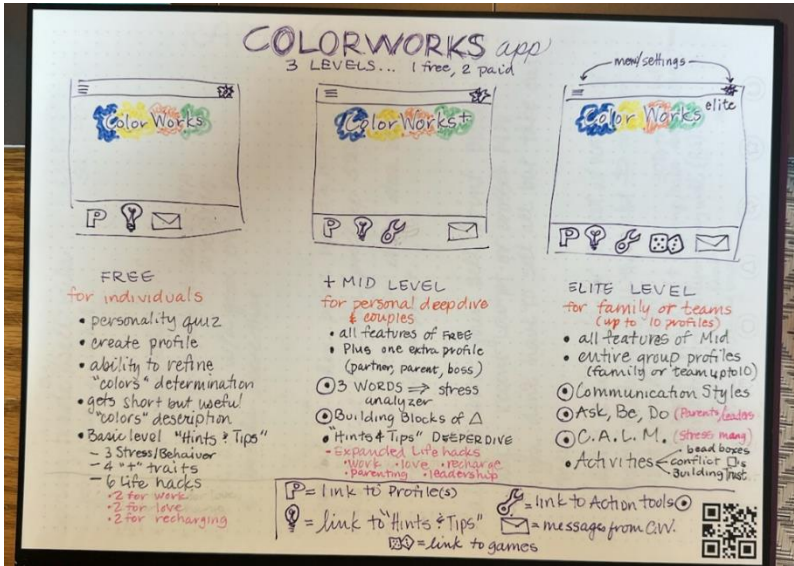 COLORWORKS app
3 LEVELS... 1 free, 2 paid
menu/settings
Color Works
Color Works+
Color Works elite
P
P
P
FREE
for individuals
• personality quiz
• create profile
• ability to refine
"colors" determination
• gets short but useful
"colors" description
• Basic level "Hints & Tips"
– 3 Stress/Behaiver
– 4 "+" traits
– 6 Life hacks
• 2 for work
• 2 for love
• 2 for recharging
+ MID LEVEL
for personal deep dive
& couples
• all features of FREE
• Plus one extra profile
(partner, parent, boss)
3 WORDS ⇒ stress
analyzer
Building Blocks of △
• "Hints & Tips" DEEPERDIVE
– Expanded Life hacks
• work • love • recharge
• parenting • leadership
ELITE LEVEL
for family or teams
(up to 10 profiles)
• all features of Mid
• entire group profiles
(family or team up to 10)
Communication Styles
Ask, Be, Do (Parents/Leaders
C.A.L.M. (Stress many)
• Activities
bead boxes
conflict
Building Trust
P = link to Profile(s)
= link to "Hints & Tips"
= link to games
= link to Action tools
= messages from C.W.